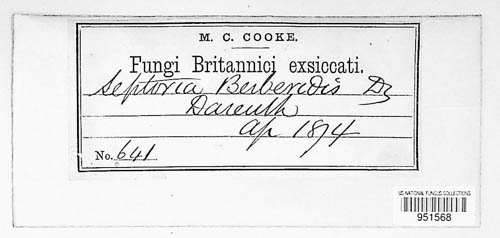 M. C. COOKE.
Fungi Britannici exsiccati.
Septoria Berberidis
Darenth
Ap 1874
No. 641
US NATIONAL FUNGUS COLLECTIONS
951568